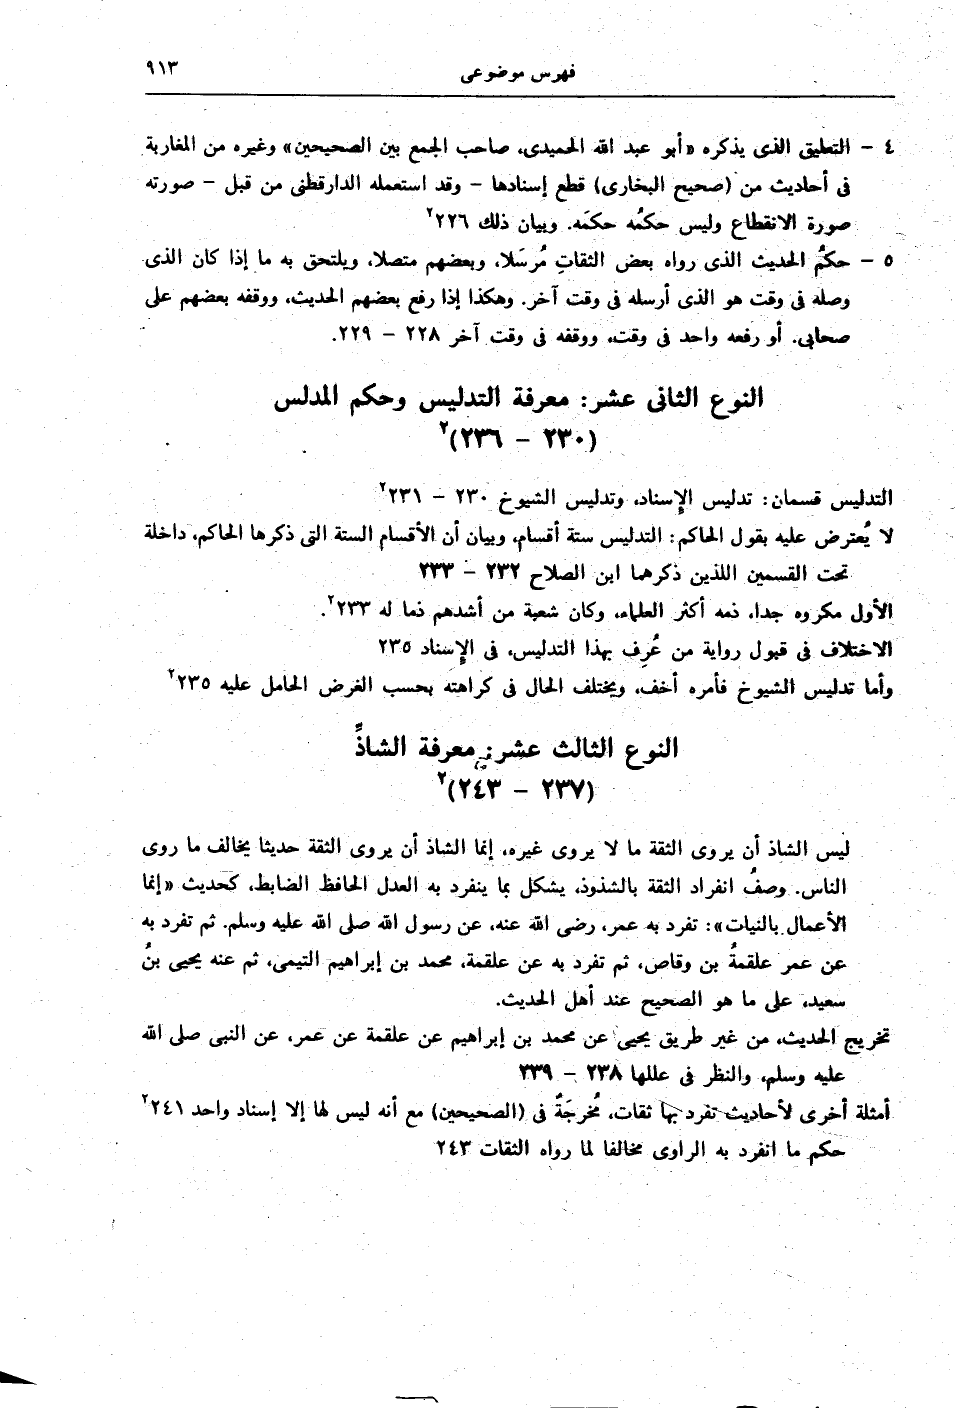 فهرس موضوعى ٩١٣
٤ - التعليق الذى يذكره «أبو عبد الله الحميدى، صاحب الجمع بين الصحيحين» وغيره من المغاربة
فى أحاديث من (صحيح البخارى) قطع إسنادها - وقد استعمله الدارقطنى من قبل - صورته
صورة الانقطاع وليس حكمُه حكمَه. وبيان ذلك ٢٢٦٢
٥ - حكمُ الحديث الذى رواه بعض الثقاتِ مُرسَلا، وبعضهم متصلا، ويلتحق به ما إذا كان الذى
وصله فى وقت هو الذى أرسله فى وقت آخر. وهكذا إذا رفع بعضهم الحديث، ووقفه بعضهم على
صحابى. أو رفعه واحد فى وقت، ووقفه فى وقت آخر ٢٢٨ - ٢٢٩.
النوع الثانى عشر: معرفة التدليس وحكم المدلس
(٢٣٠ - ٢٣٦)٢
التدليس قسمان: تدليس الإسناد، وتدليس الشيوخ ٢٣٠ - ٢٣١٢
لا يُعترض عليه بقول الحاكم: التدليس ستة أقسام، وبيان أن الأقسام الستة التى ذكرها الحاكم، داخلة
تحت القسمين اللذين ذكرهما ابن الصلاح ٢٣٢ - ٢٣٣
الأول مكروه جدا، ذمه أكثر العلماء، وكان شعبة من أشدهم ذما له ٢٣٣٢.
الاختلاف فى قبول رواية من عُرِف بهذا التدليس، فى الإسناد ٢٣٥
وأما تدليس الشيوخ فأمره أخف، ويختلف الحال فى كراهته بحسب الغرض الحامل عليه ٢٣٥٢
النوع الثالث عشر: معرفة الشاذِّ
(٢٣٧ - ٢٤٣)٢
ليس الشاذ أن يروى الثقة ما لا يروى غيره، إنما الشاذ أن يروى الثقة حديثا يخالف ما روى
الناس. وصفُ انفراد الثقة بالشذوذ، يشكل بما ينفرد به العدل الحافظ الضابط، كحديث «إنما
الأعمال بالنيات»: تفرد به عمر، رضى الله عنه، عن رسول الله صلى الله عليه وسلم. ثم تفرد به
عن عمر علقمةُ بن وقاص، ثم تفرد به عن علقمة، محمد بن إبراهيم التيمى، ثم عنه يحيى بنُ
سعيد، على ما هو الصحيح عند أهل الحديث.
تخريج الحديث، من غير طريق يحيى عن محمد بن إبراهيم عن علقمة عن عمر، عن النبى صلى الله
عليه وسلم، والنظر فى عللها ٢٣٨ - ٢٣٩
أمثلة أخرى لأحاديث تفرد بها ثقات، مُخرجَةٌ فى (الصحيحين) مع أنه ليس لها إلا إسناد واحد ٢٤١٢
حكم ما انفرد به الراوى مخالفا لما رواه الثقات ٢٤٣